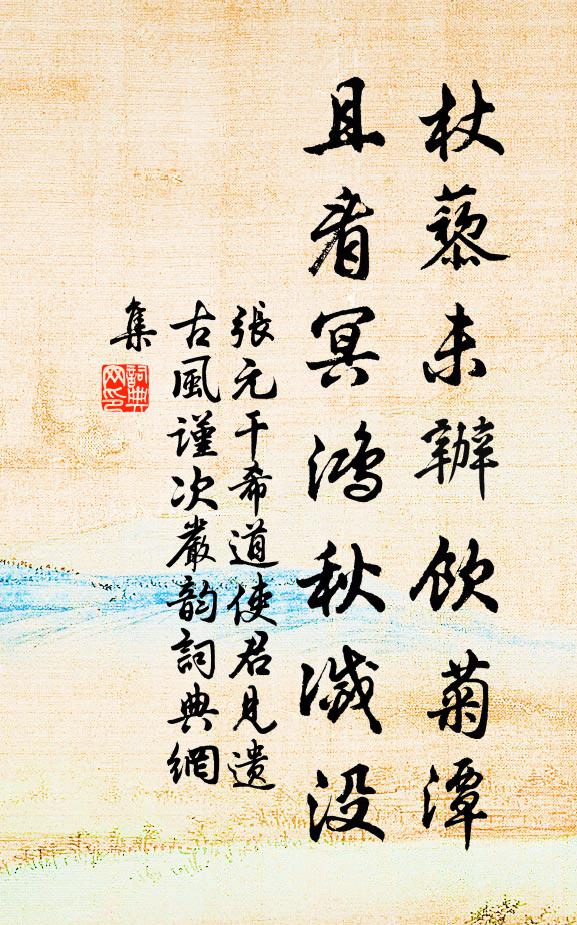 杖藜未辦飲菊潭
且看冥鴻秋滅没
張元干希道使君見遺
古風謹次嚴韵詞典網
集
詞典網印